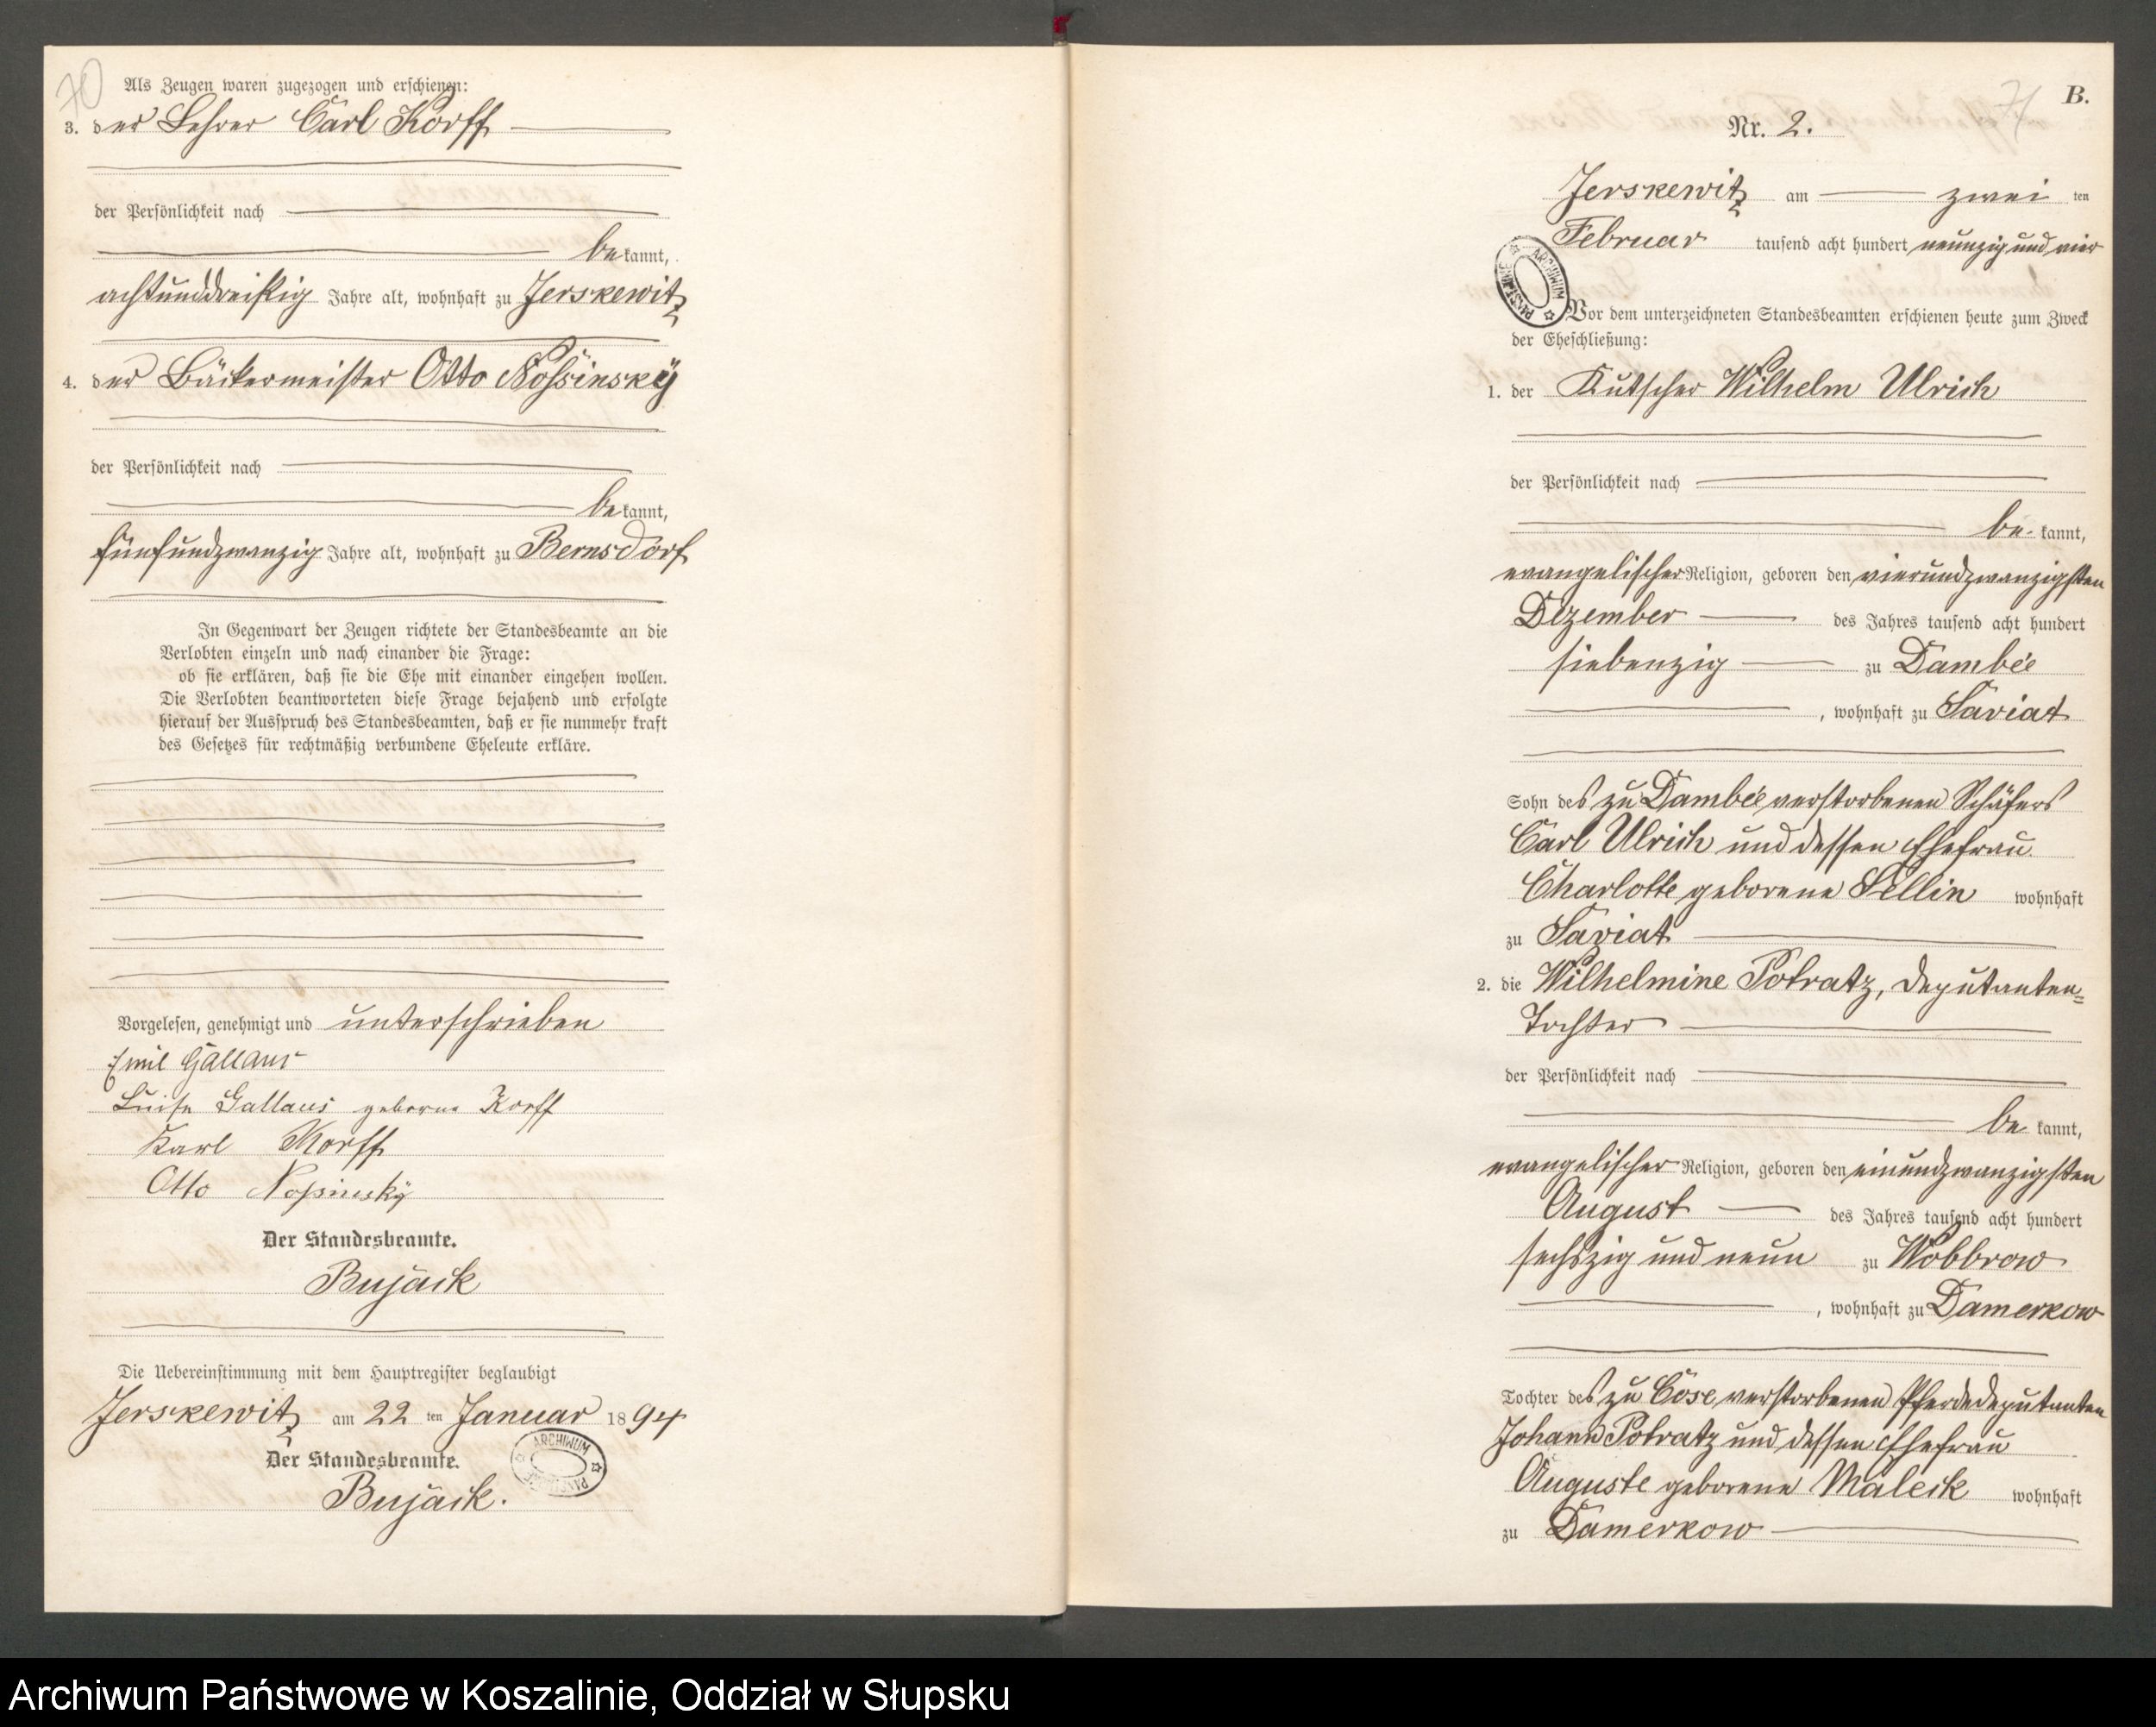 70
Als Zeugen waren zugezogen und erschienen:
3. der Lehrer Carl Korff
der Persönlichkeit nach
be kannt,
achtunddreißig Jahre alt, wohnhaft zu Jerskewitz
4. der Bäckermeister Otto Nossinsky
der Persönlichkeit nach
be kannt,
fünfundzwanzig Jahre alt, wohnhaft zu Bernsdorf
In Gegenwart der Zeugen richtete der Standesbeamte an die
Verlobten einzeln und nach einander die Frage:
ob sie erklären, daß sie die Ehe mit einander eingehen wollen.
Die Verlobten beantworteten diese Frage bejahend und erfolgte
hierauf der Ausspruch des Standesbeamten, daß er sie nunmehr kraft
des Gesetzes für rechtmäßig verbundene Eheleute erkläre.
Vorgelesen, genehmigt und unterschrieben
Emil Gallaus
Luise Gallaus geborne Korff
Karl Korff
Otto Nossinsky
Der Standesbeamte.
Bujack
Die Uebereinstimmung mit dem Hauptregister beglaubigt
Jerskewitz am 22 ten Januar 1894
Der Standesbeamte.
Bujack.
71
B.
Nr. 2.
Jerskewitz am zwei ten
Februar tausend acht hundert neunzig und vier
Vor dem unterzeichneten Standesbeamten erschienen heute zum Zweck
der Eheschließung:
1. der Kutscher Wilhelm Ulrich
der Persönlichkeit nach
be kannt,
evangelischer Religion, geboren den vierundzwanzigsten
Dezember des Jahres tausend acht hundert
siebenzig zu Dambée
, wohnhaft zu Saviat
Sohn des zu Dambée verstorbenen Schäfers
Carl Ulrich und dessen Ehefrau
Charlotte geborene Sellin wohnhaft
zu Saviat
2. die Wilhelmine Potratz, Deputanten=
Tochter
der Persönlichkeit nach
be kannt,
evangelischer Religion, geboren den einundzwanzigsten
August des Jahres tausend acht hundert
sechszig und neun zu Wobbrow
, wohnhaft zu Damerkow
Tochter des zu Cose verstorbenen Pferdedeputanten
Johann Potratz und dessen Ehefrau
Auguste geborene Maleck wohnhaft
zu Damerkow
Archiwum Państwowe w Koszalinie, Oddział w Słupsku